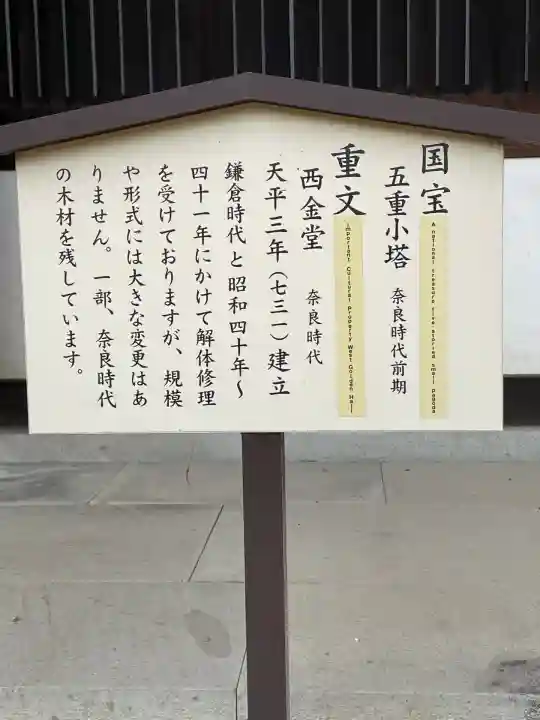 国宝
A national treasure five storied small Pagoda
五重小塔 奈良時代前期
重文
Important Cultural Property West Golden Hall
西金堂 奈良時代
天平三年(七三一)建立
鎌倉時代と昭和四十年~
四十一年にかけて解体修理
を受けておりますが、規模
や形式には大きな変更はあ
りません。一部、奈良時代
の木材を残しています。